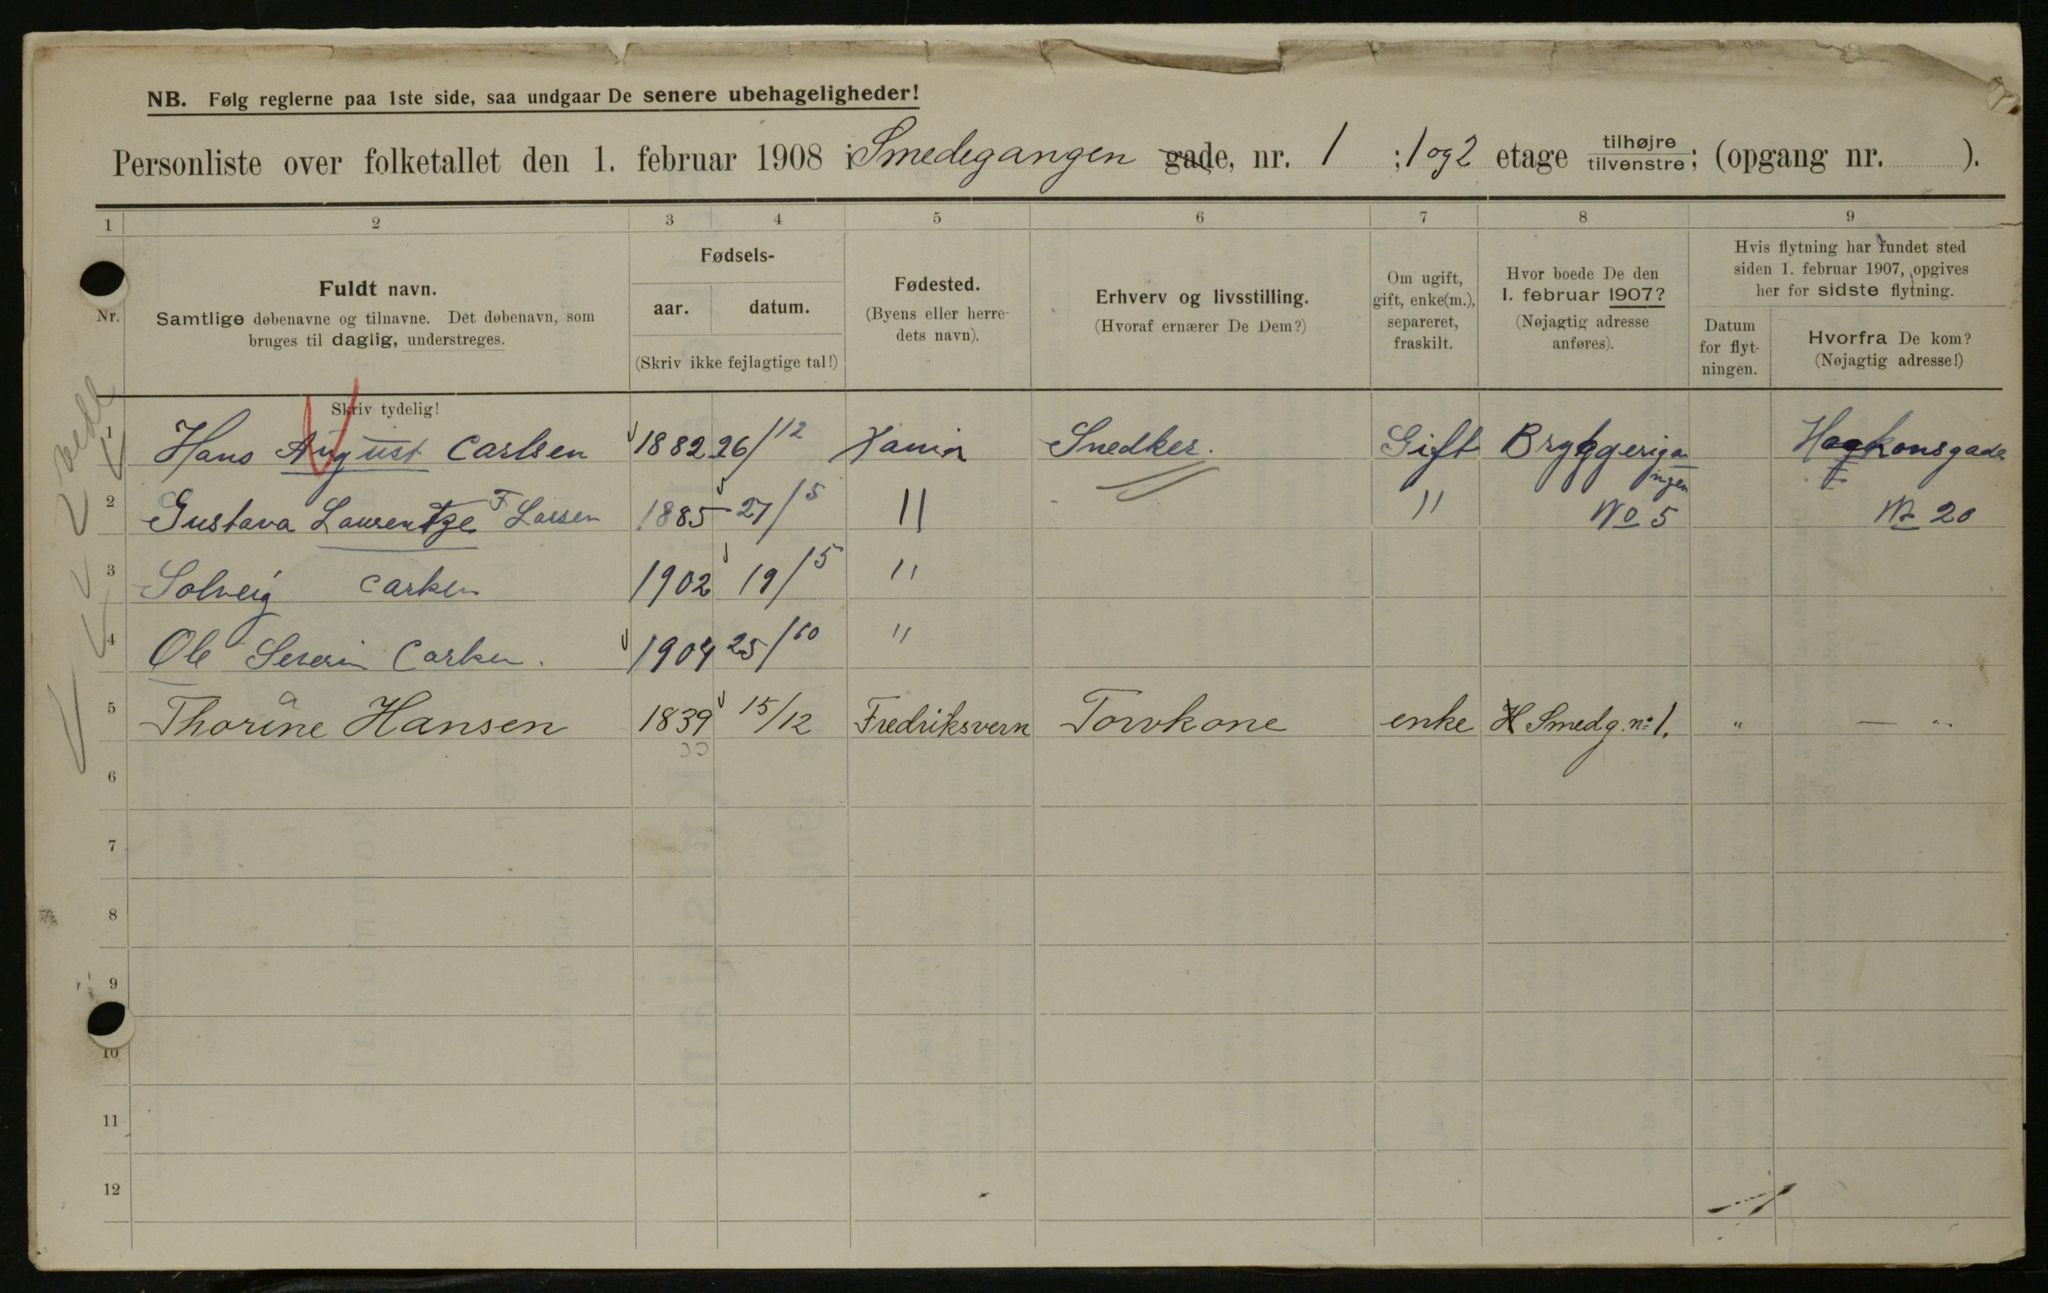 NB. Følg reglerne paa 1ste side, saa undgaar De senere ubehageligheder!
Personliste over folketallet den 1. februar 1908 i Smedegangen gade, nr. 1 ; 1 og 2 etage tilhøjre tilvenstre ; (opgang nr. ).
1 2 3 4 5 6 7 8 9
Nr.
Fuldt navn.
Samtlige døbenavne og tilnavne. Det døbenavn, som
bruges til daglig, understreges.
Skriv tydelig!
Fødsels-
aar. datum.
(Skriv ikke fejlagtige tal!)
Fødested.
(Byens eller herre-
dets navn).
Erhverv og livsstilling.
(Hvoraf ernærer De Dem?)
Om ugift,
gift, enke(m.),
separeret,
fraskilt.
Hvor boede De den
1. februar 1907?
(Nøjagtig adresse
anføres).
Hvis flytning har fundet sted
siden 1. februar 1907, opgives
her for sidste flytning.
Datum
for flyt-
ningen.
Hvorfra De kom?
(Nøjagtig adresse!)
1 Hans August Carlsen 1882 26/12 Xania Snedker. Gift Bryggeriga Haakonsgade
ngen
2 Gustava Laurentze F Larsen 1885 27/5 " " No 5 No 20
3 Solveig Carlsen 1902 19/5 "
4 Ole Severin Carlsen. 1904 25/10 "
5 Thorine Hansen 1839 15/12 Fredriksvern Torvkone enke Smedg. no 1. " — "
6
7
8
9
10
11
12